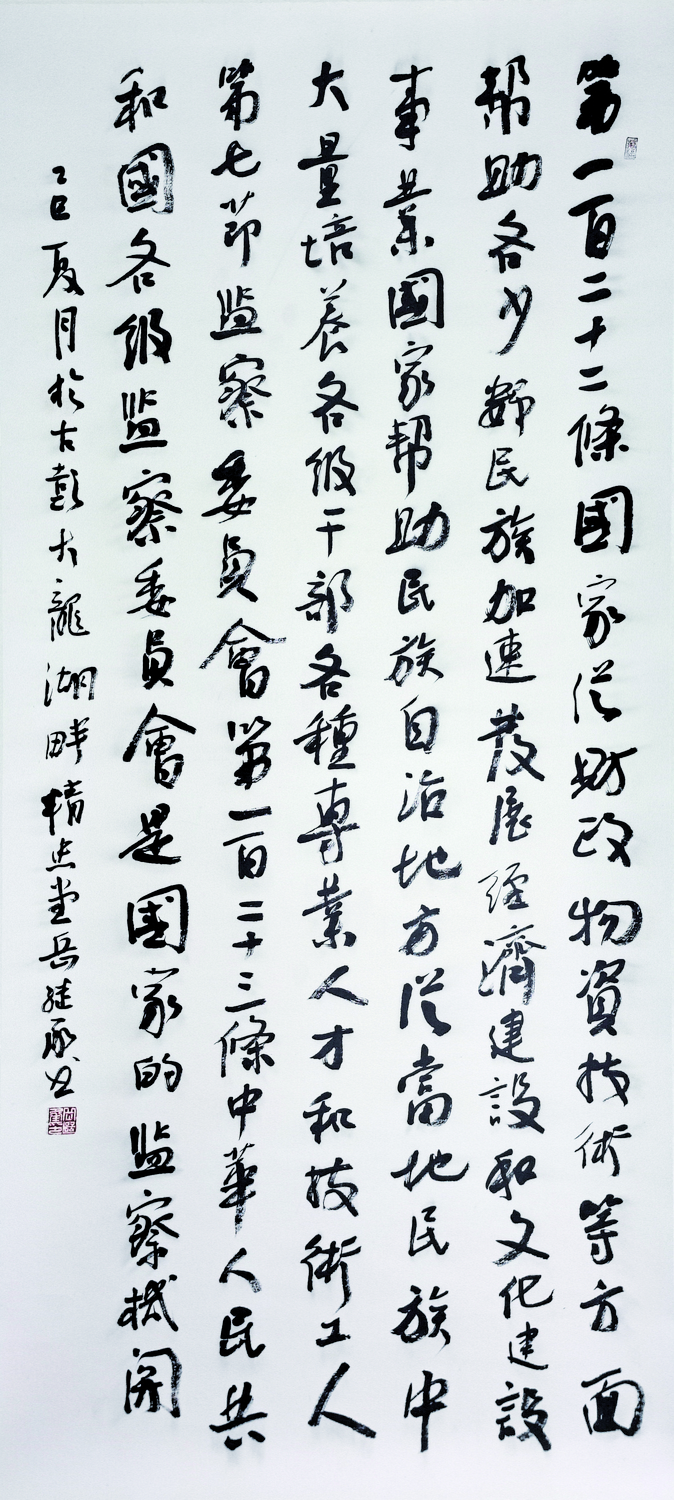 第一百二十二條國家從財政物資技術等方面
帮助各少數民族加速發展經濟建設和文化建設
事業國家帮助民族自治地方從當地民族中
大量培養各級干部各種專業人才和技術工人
第七節監察委員會第一百二十三條中華人民共
和國各級監察委員會是國家的監察機關
乙巳夏月於古彭大龍湖畔精忠堂岳繼